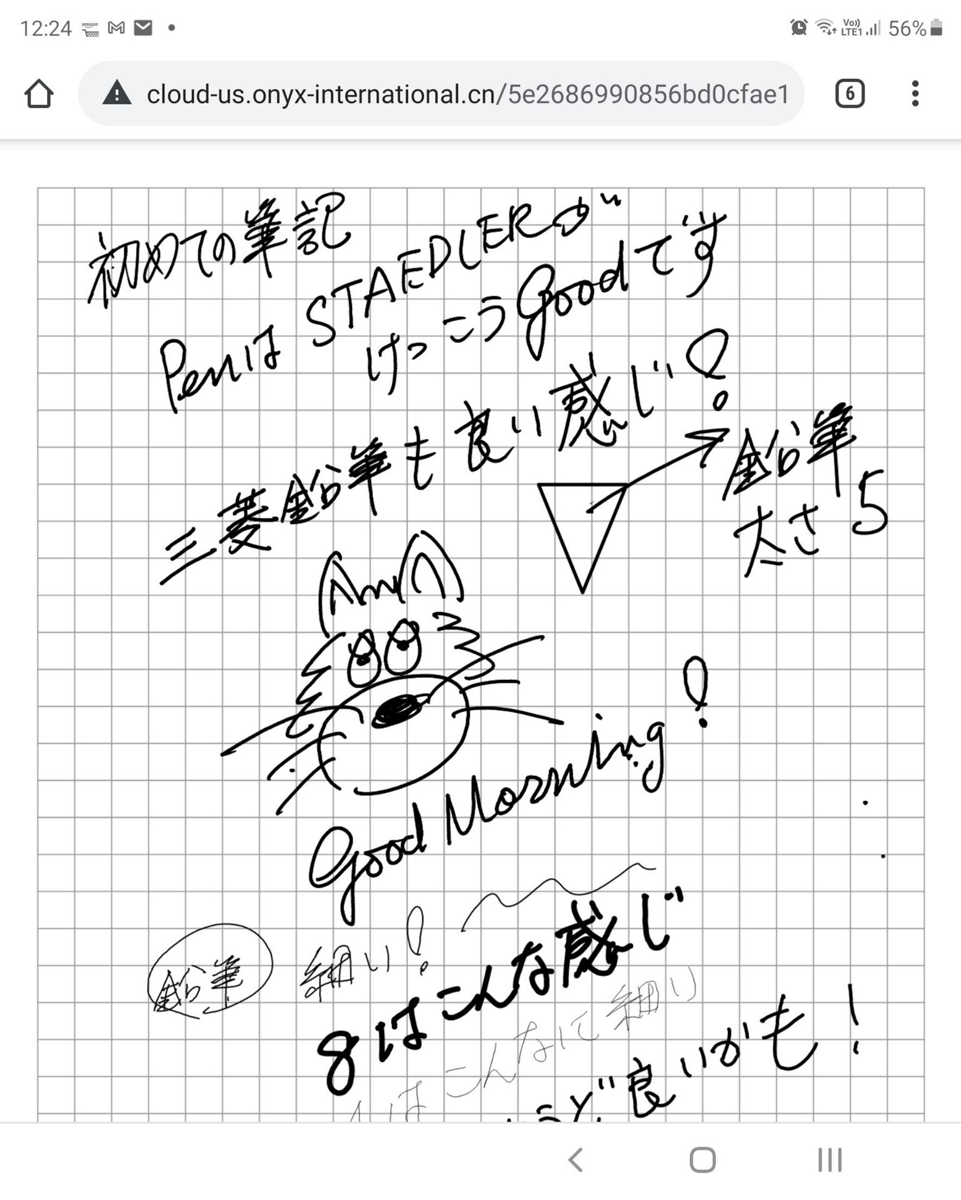 12:24
Vo)) LTE1 56%
cloud-us.onyx-international.cn/5e2686990856bd0cfae1
6
初めての筆記
Penは STAEDLERが
けっこうGoodです
三菱鉛筆も良い感じ!
鉛筆
太さ5
Good Morning!
鉛筆 細い!
8はこんな感じ
はこんなに細い
うど良いかも!